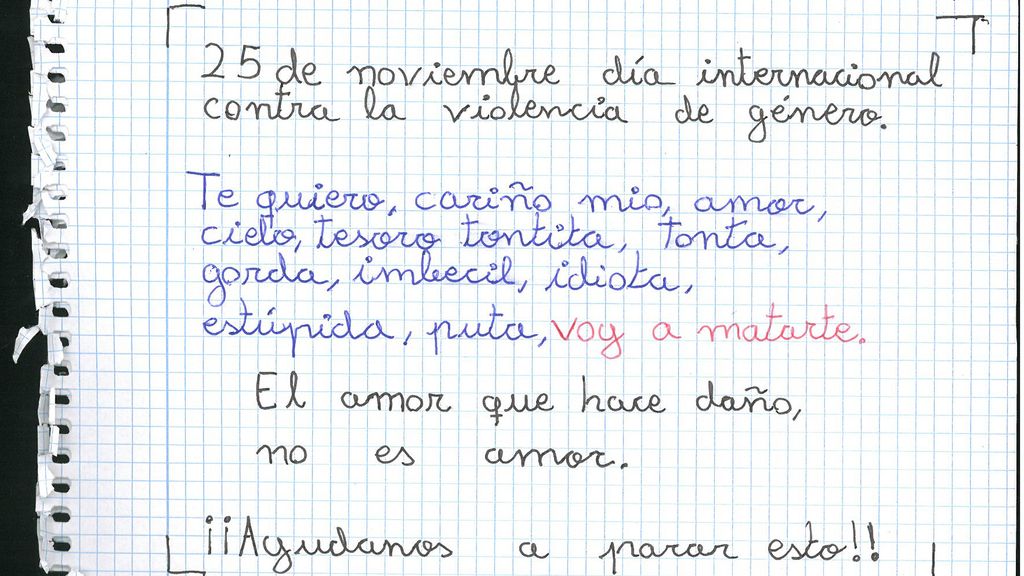 25 de noviembre día internacional
contra la violencia de género.
Te quiero, cariño mio, amor,
cielo, tesoro tontita, tonta,
gorda, imbecil, idiota,
estúpida, puta, voy a matarte.
El amor que hace daño,
no es amor.
¡¡Ayudanos a parar esto!!